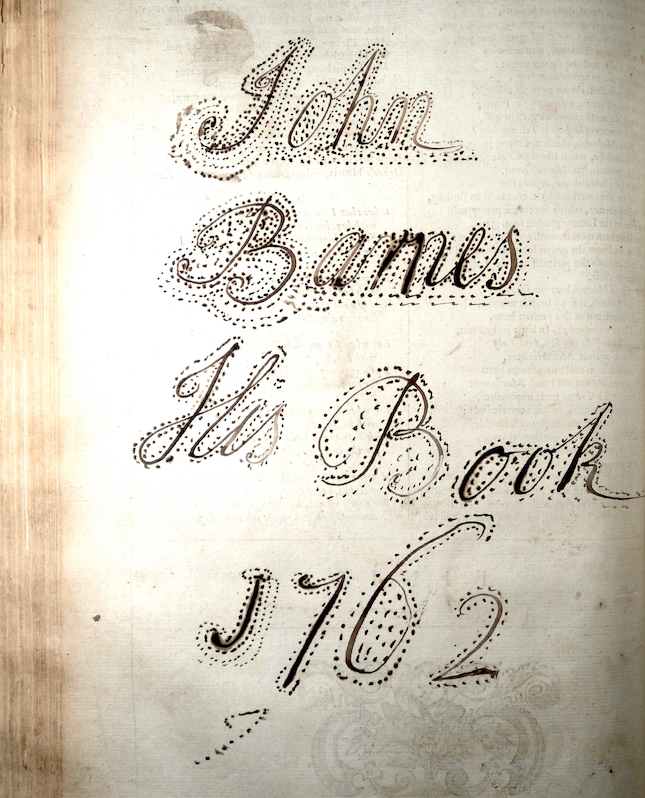 John
Barnes
His Book
1762